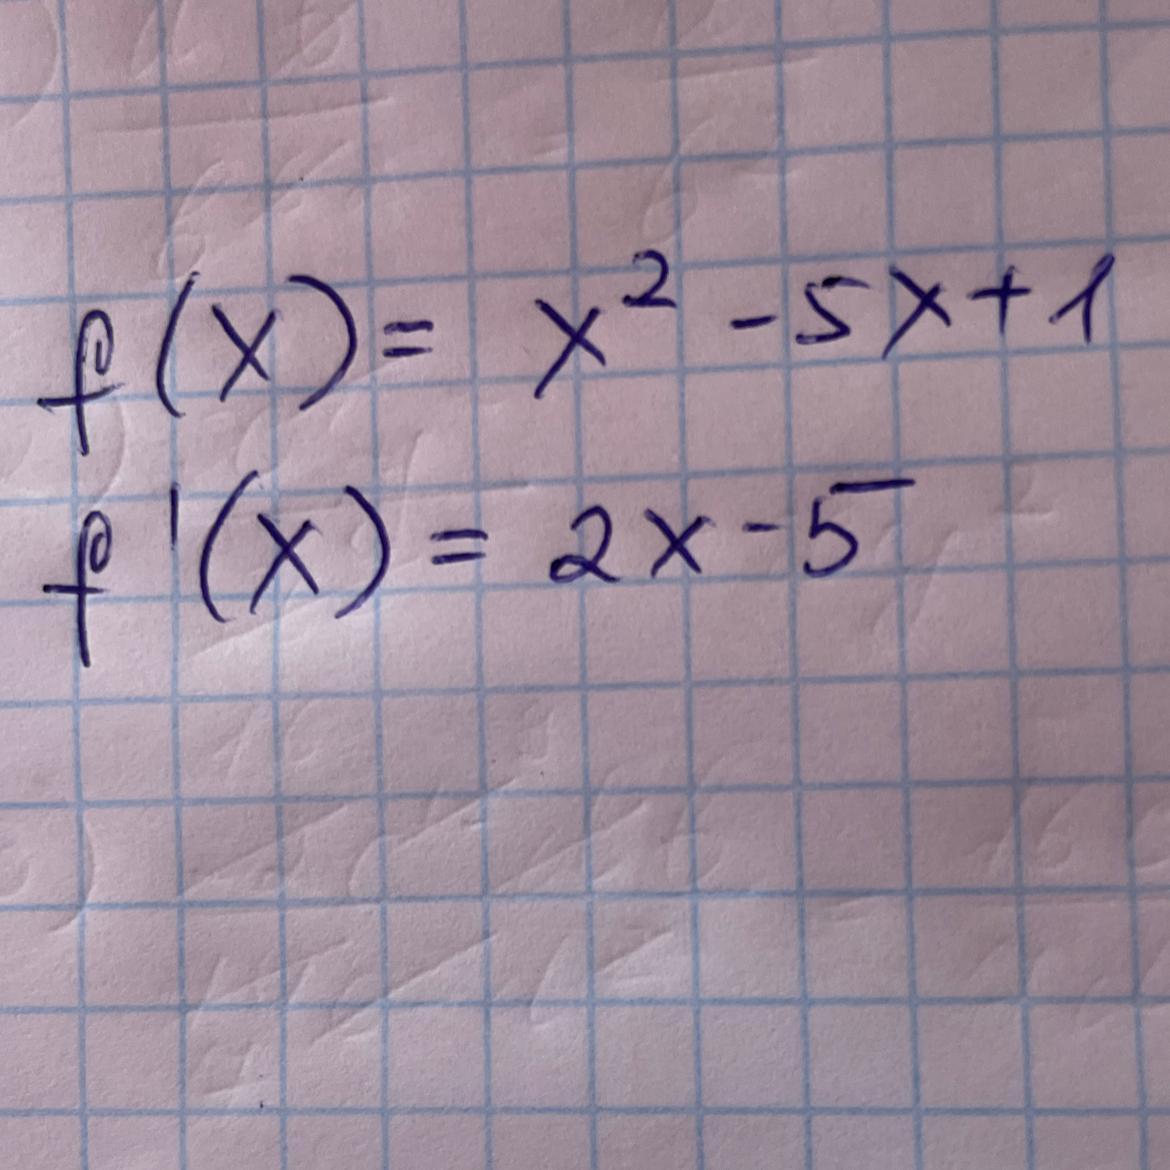 f(x) = x² - 5x + 1
f'(x) = 2x - 5